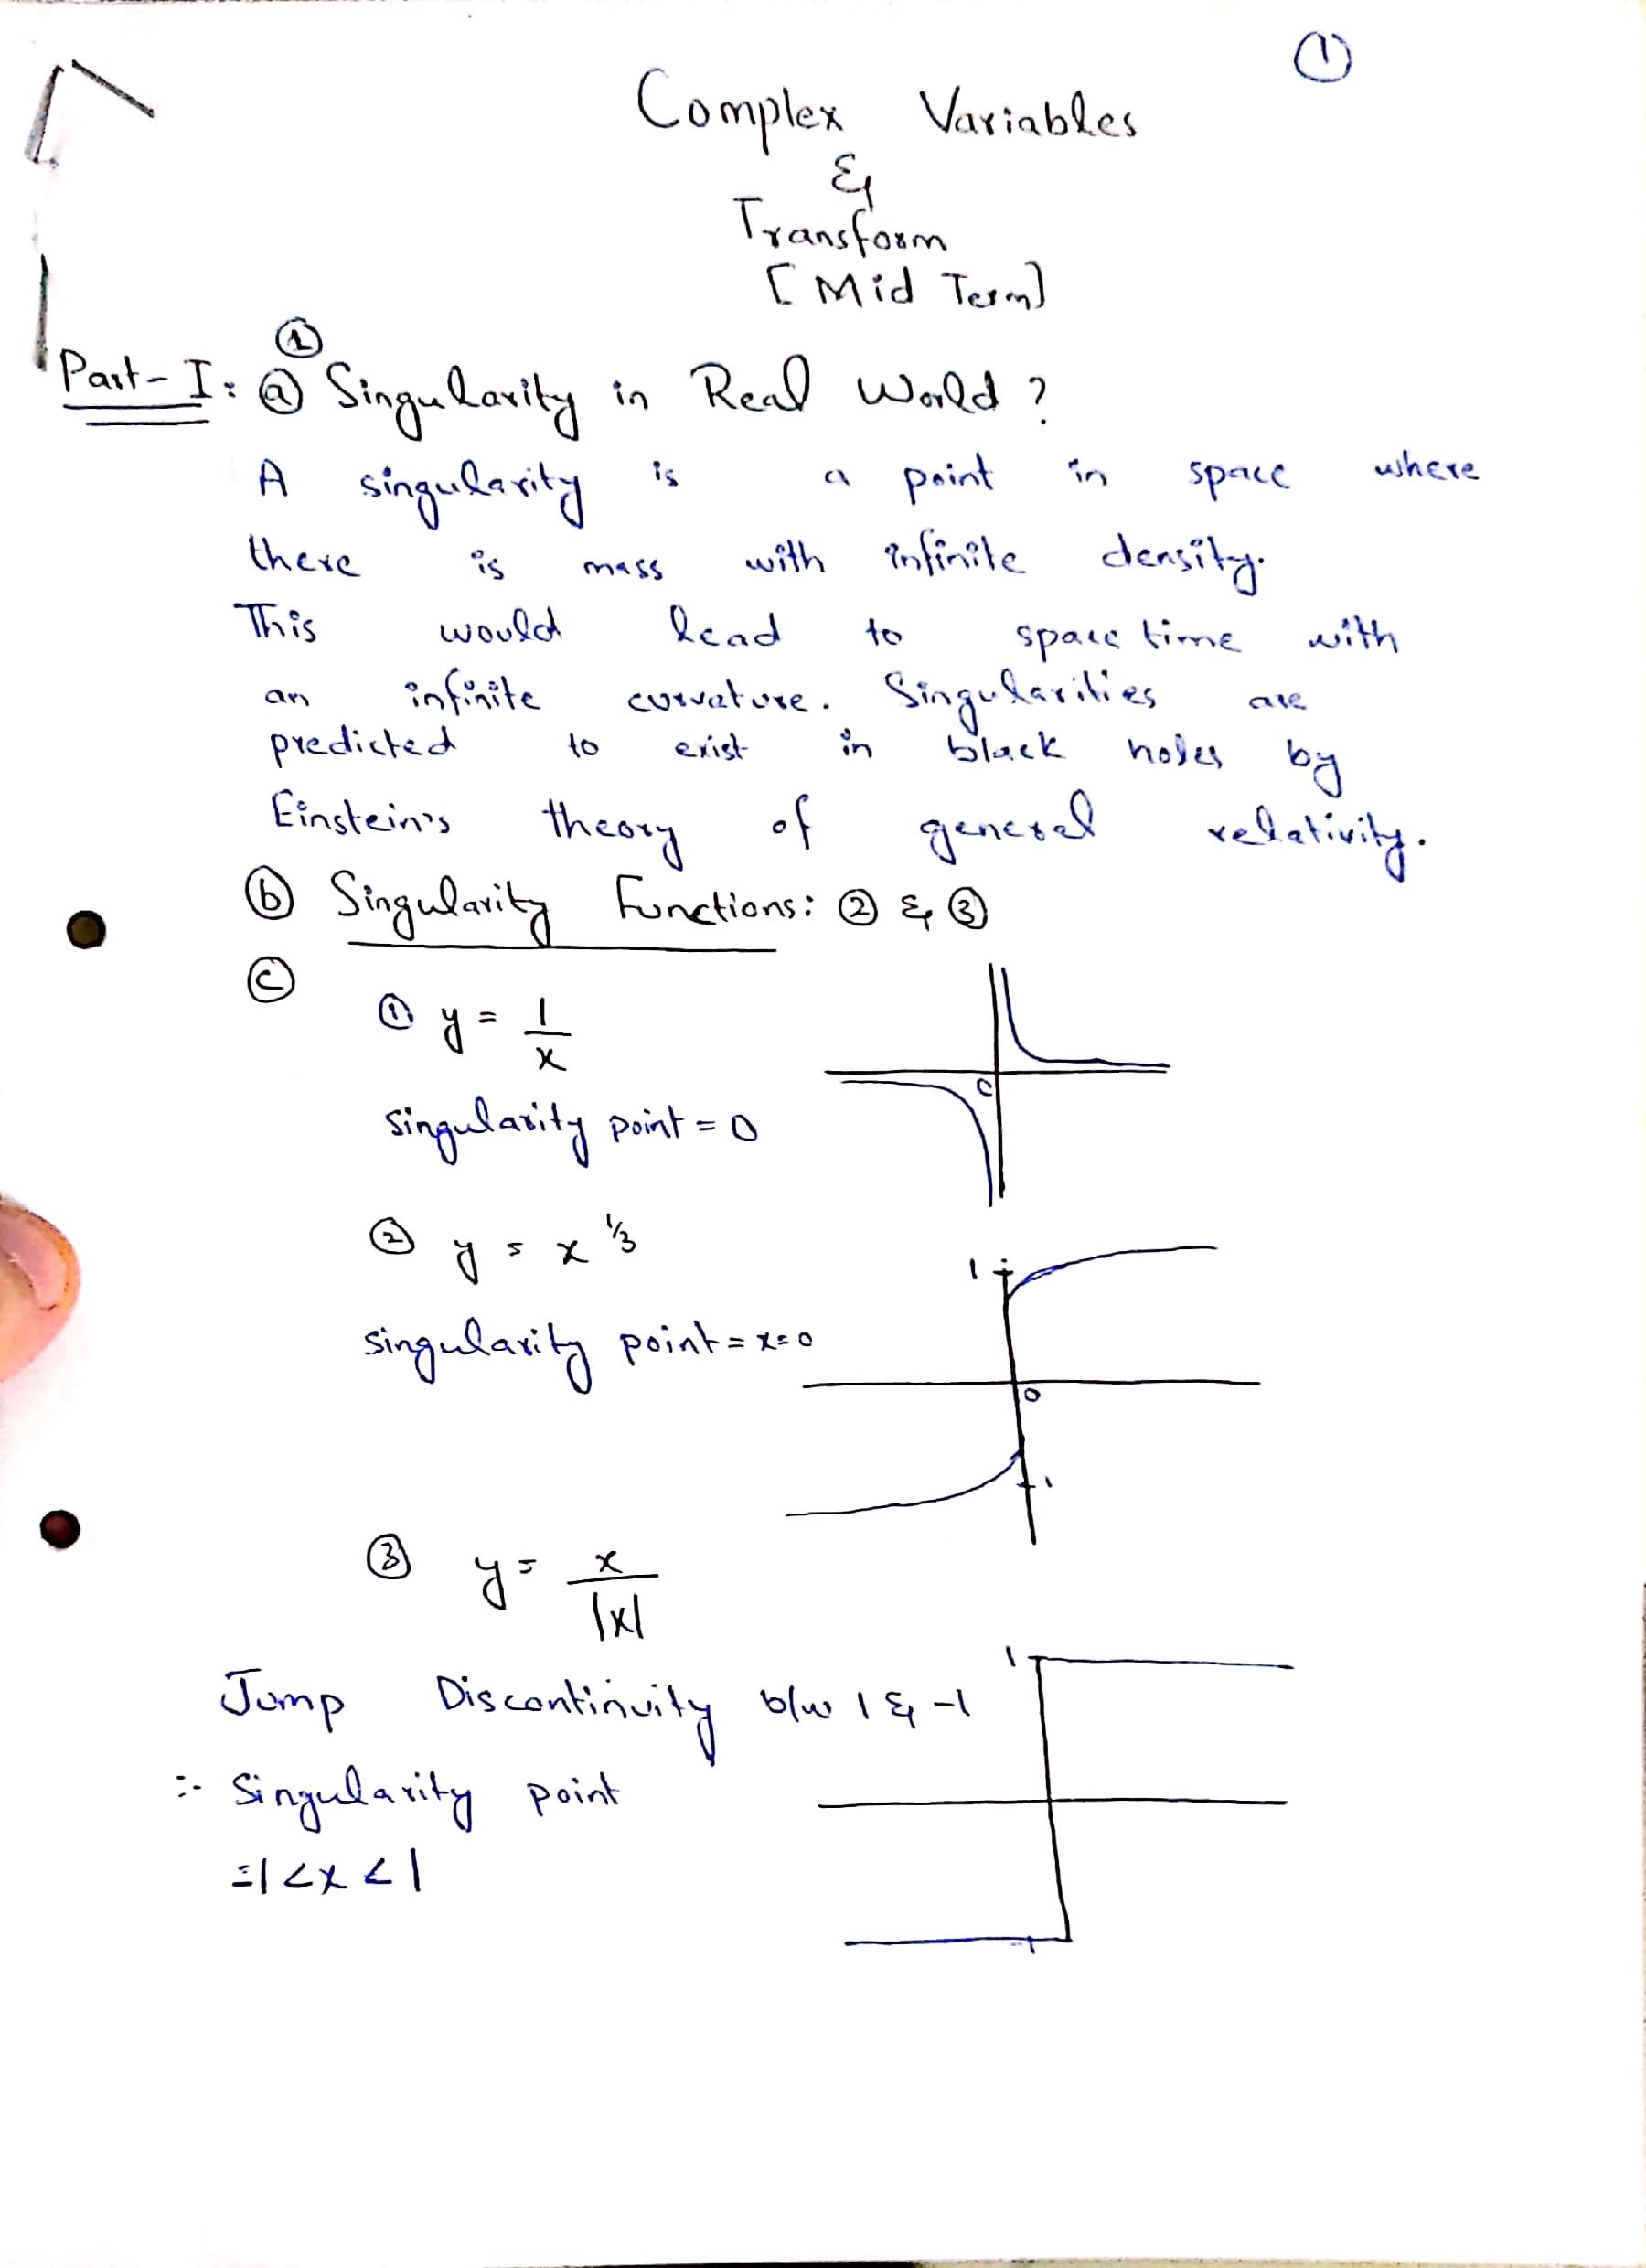 ①
Complex Variables
&
Transform
[Mid Term]
①
Part-I: ⓐ Singularity in Real World ?
A singularity is a point in space where
there is mass with infinite density.
This would lead to space time with
an infinite curvature. Singularities are
predicted to exist in black holes by
Einstein's theory of general relativity.
ⓑ Singularity Functions: ② & ③
ⓒ
① y = 1/x
0
singularity point = 0
② y = x^1/3
1
singularity point = x=0
0
-1
③ y = x/|x|
1
Jump Discontinuity b/w 1 & -1
∴ Singularity point
-1<x<1
-1